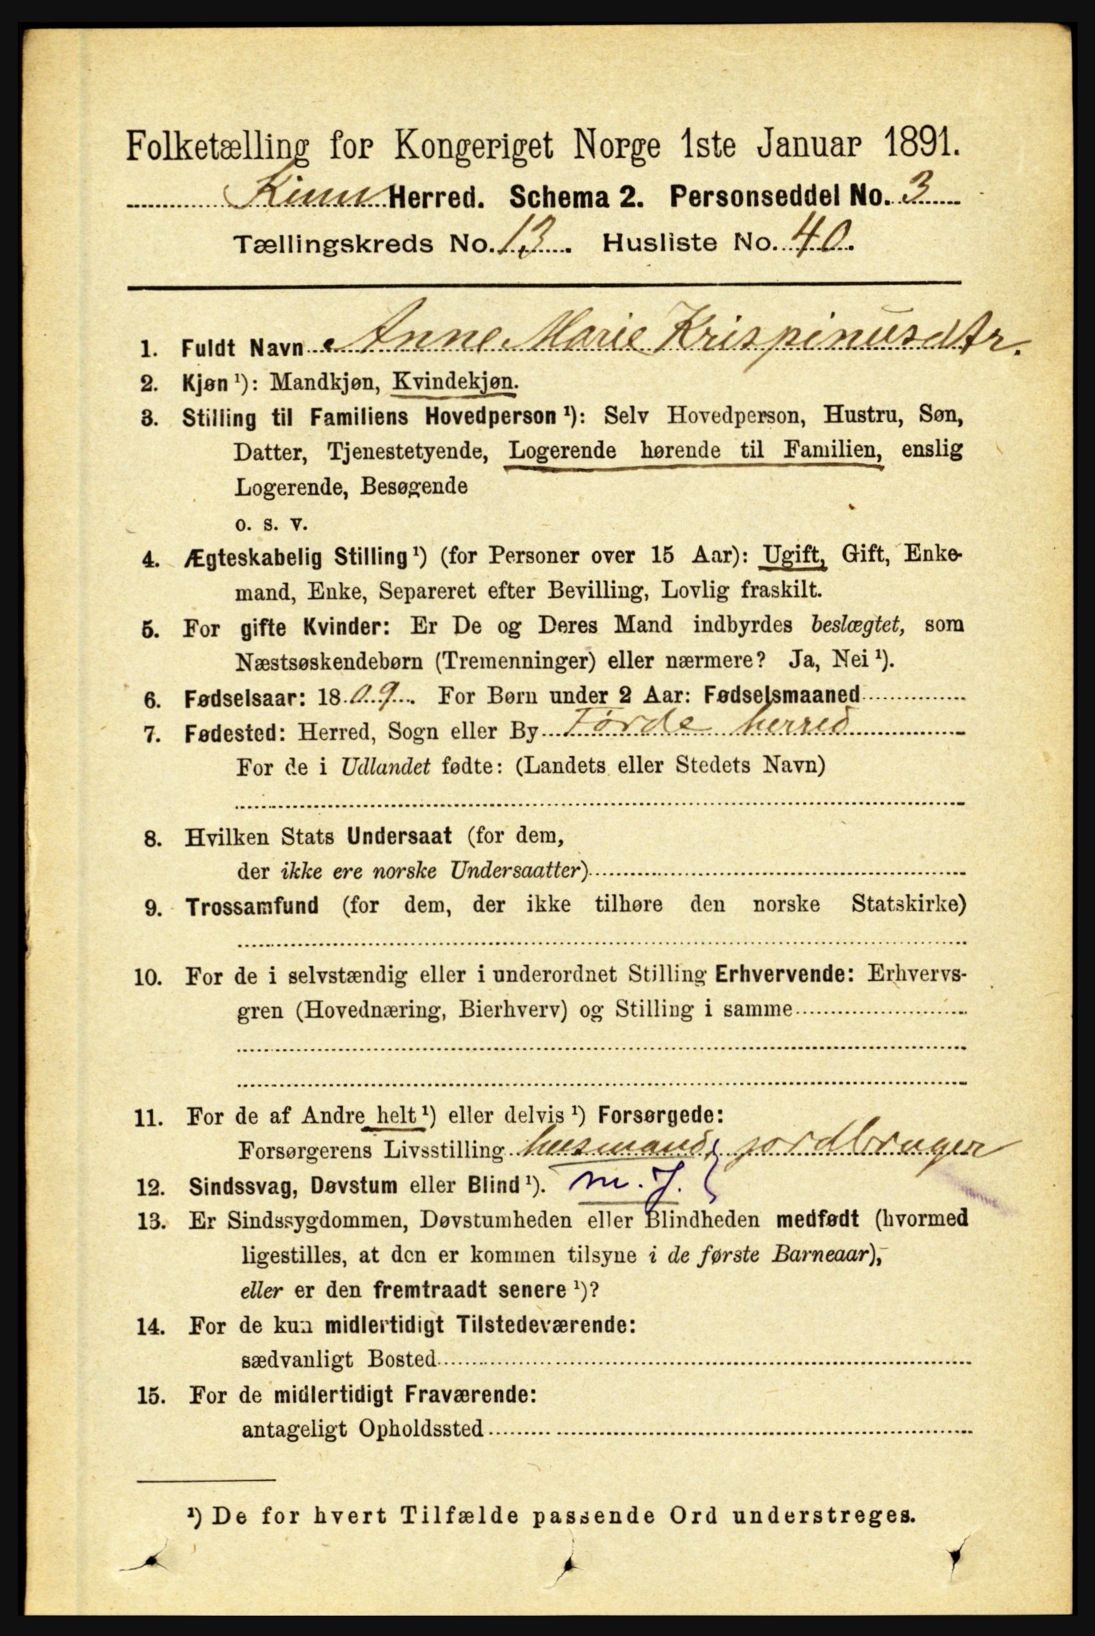 Folketælling for Kongeriget Norge 1ste Januar 1891.
Kinn Herred. Schema 2. Personseddel No. 3
Tællingskreds No. 13. Husliste No. 40.
1. Fuldt Navn Anne Marie Krispinusdtr.
2. Kjøn ¹): Mandkjøn, Kvindekjøn.
3. Stilling til Familiens Hovedperson ¹): Selv Hovedperson, Hustru, Søn,
Datter, Tjenestetyende, Logerende hørende til Familien, enslig
Logerende, Besøgende
o. s. v.
4. Ægteskabelig Stilling ¹) (for Personer over 15 Aar): Ugift, Gift, Enke-
mand, Enke, Separeret efter Bevilling, Lovlig fraskilt.
5. For gifte Kvinder: Er De og Deres Mand indbyrdes beslægtet, som
Næstsøskendebørn (Tremenninger) eller nærmere? Ja, Nei ¹).
6. Fødselsaar: 1809. For Børn under 2 Aar: Fødselsmaaned
7. Fødested: Herred, Sogn eller By Førde herred
For de i Udlandet fødte: (Landets eller Stedets Navn)
8. Hvilken Stats Undersaat (for dem,
der ikke ere norske Undersaatter)
9. Trossamfund (for dem, der ikke tilhøre den norske Statskirke)
10. For de i selvstændig eller i underordnet Stilling Erhvervende: Erhvervs-
gren (Hovednæring, Bierhverv) og Stilling i samme
11. For de af Andre helt ¹) eller delvis ¹) Forsørgede:
Forsørgerens Livsstilling husmand, jordbruger
12. Sindssvag, Døvstum eller Blind ¹). m. J.
13. Er Sindssygdommen, Døvstumheden eller Blindheden medfødt (hvormed
ligestilles, at den er kommen tilsyne i de første Barneaar),
eller er den fremtraadt senere ¹)?
14. For de kun midlertidigt Tilstedeværende:
sædvanligt Bosted
15. For de midlertidigt Fraværende:
antageligt Opholdssted
¹) De for hvert Tilfælde passende Ord understreges.